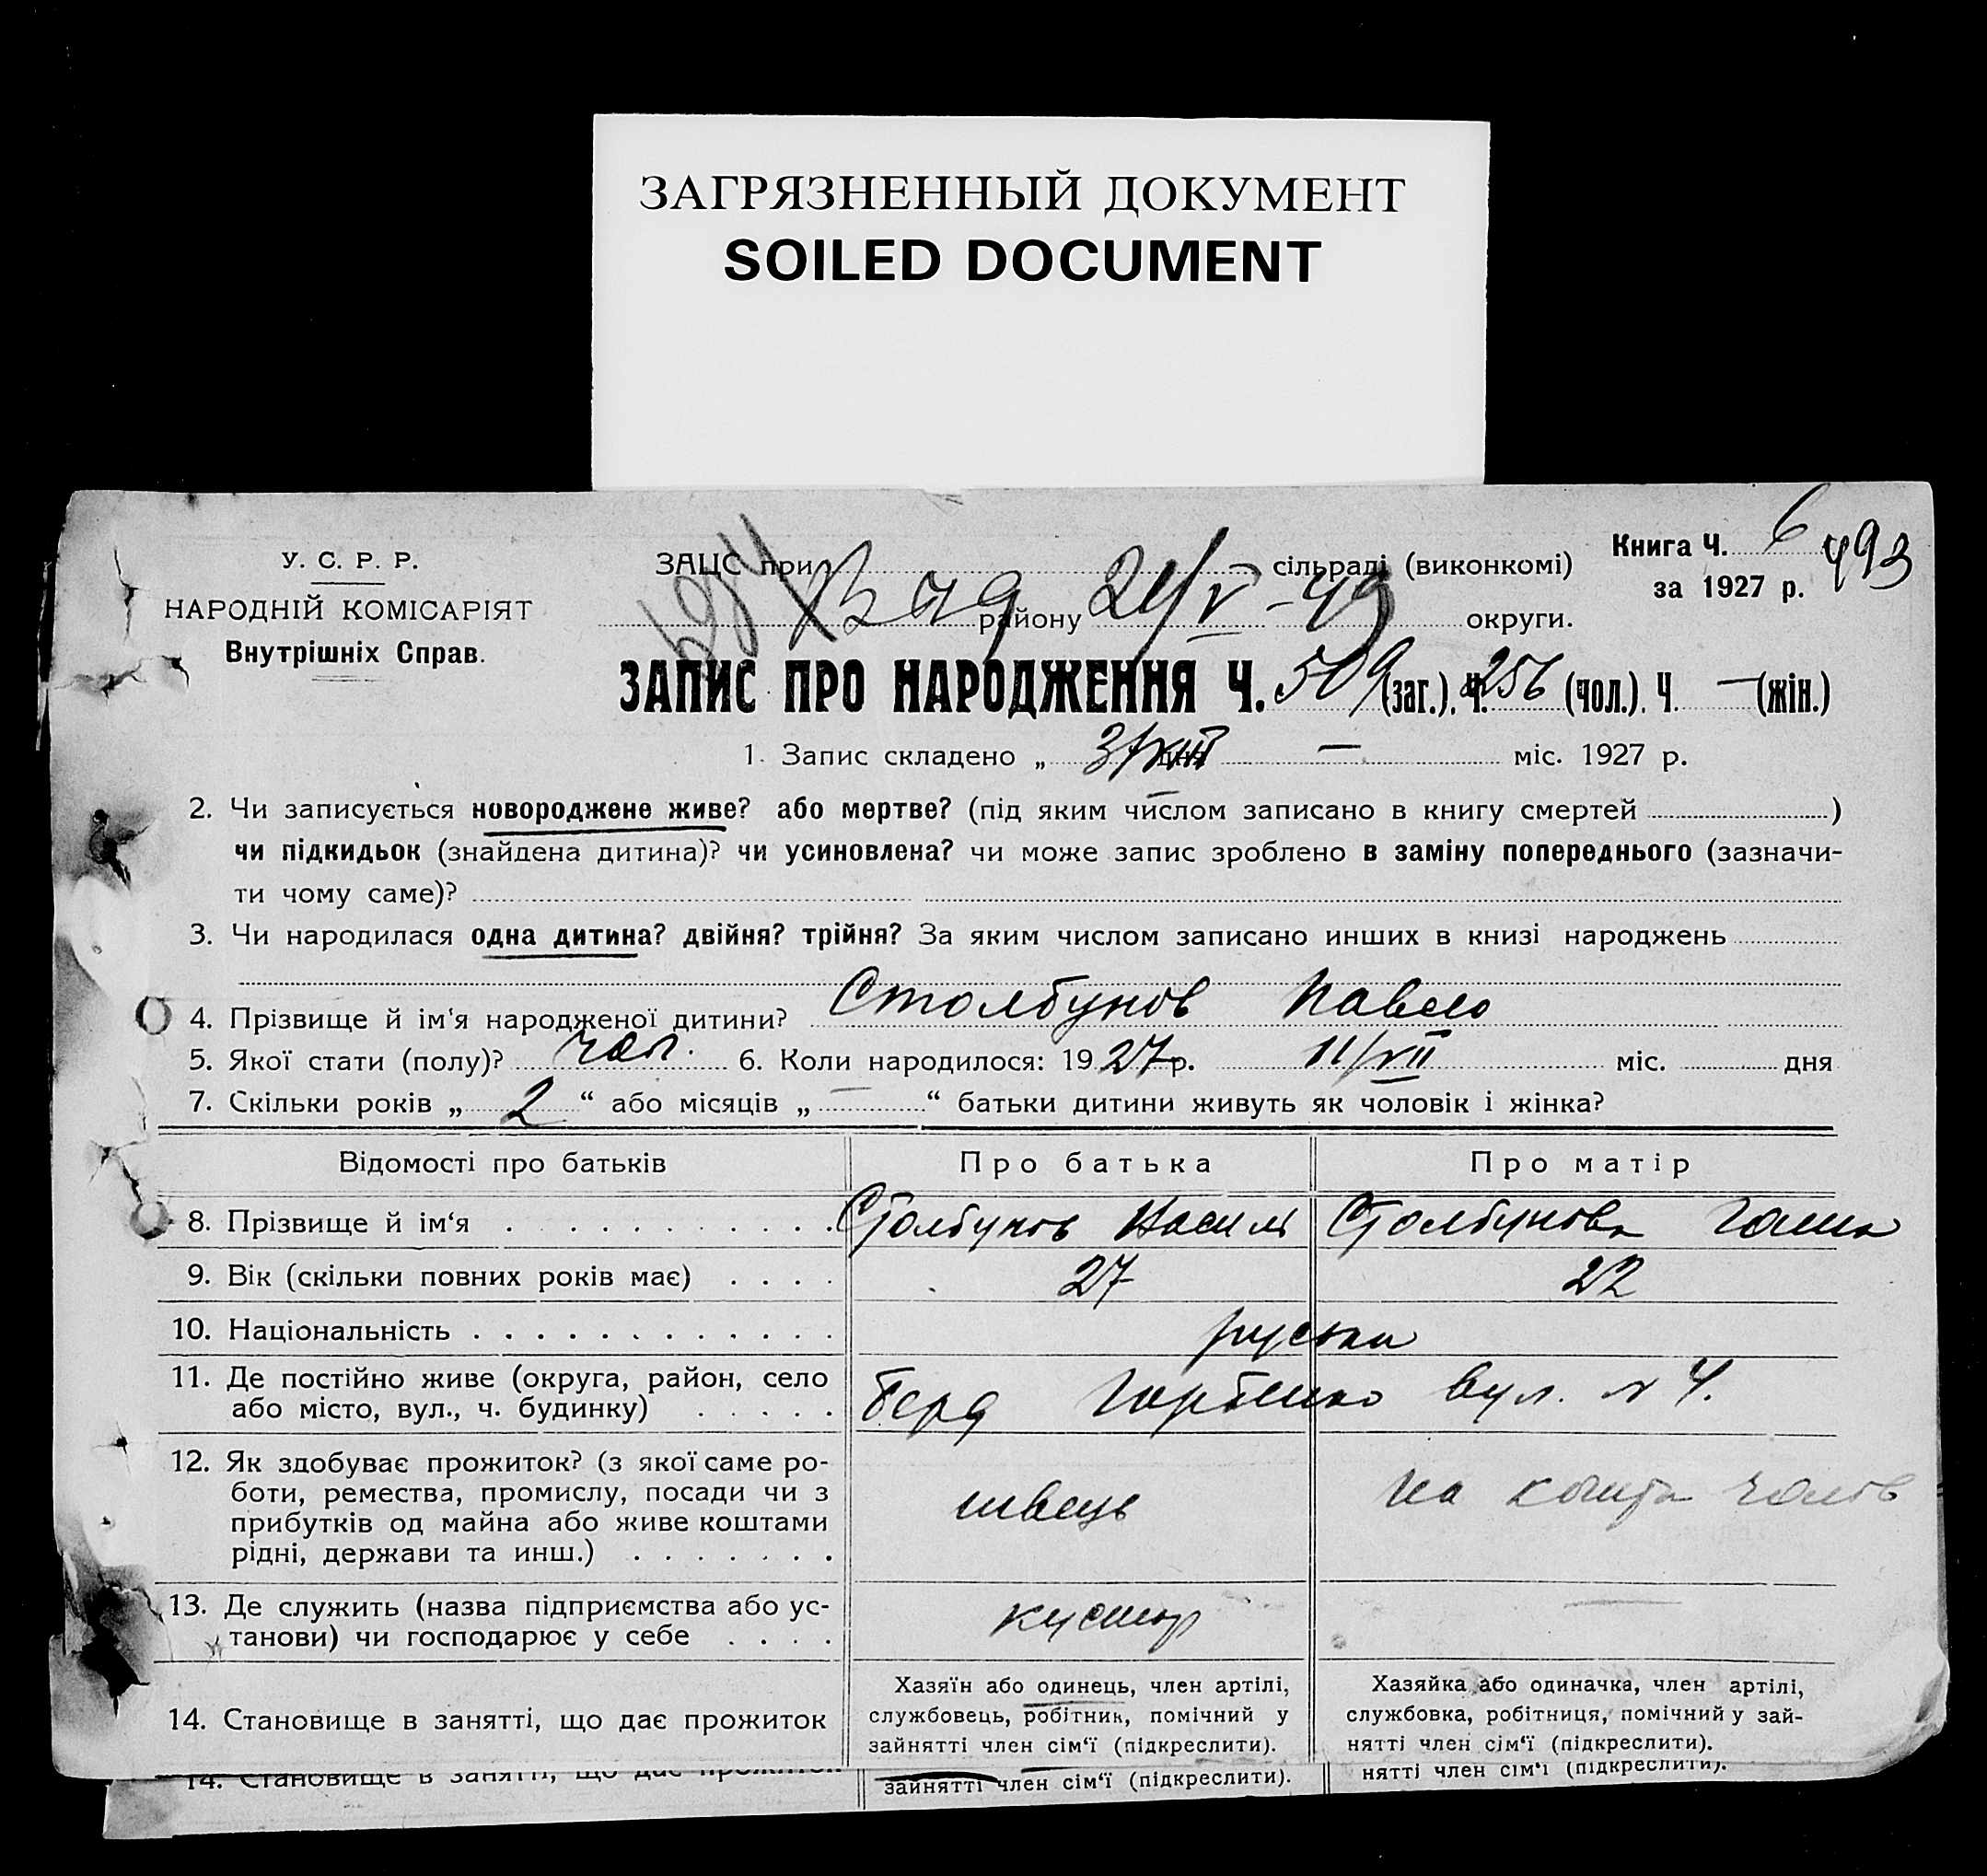 ЗАГРЯЗНЕННЫЙ ДОКУМЕНТ
SOILED DOCUMENT
У. С. Р. Р.
НАРОДНІЙ КОМІСАРІЯТ
Внутрішніх Справ.
ЗАЦС при сільраді (виконкомі)
району 24/V-49 округи.
Книга Ч. 6
за 1927 р. 493
ЗАПИС ПРО НАРОДЖЕННЯ Ч. 509 (заг.). Ч. 256 (чол.). Ч. — (жін.)
1. Запис складено „ — міс. 1927 р.
2. Чи записується новороджене живе? або мертве? (під яким числом записано в книгу смертей )
чи підкидьок (знайдена дитина)? чи усиновлена? чи може запис зроблено в заміну попереднього (зазначи-
ти чому саме)?
3. Чи народилася одна дитина? двійня? трійня? За яким числом записано инших в книзі народжень
4. Прізвище й ім'я народженої дитини? Столбунов Павло
5. Якої стати (полу)? чол. 6. Коли народилося: 1927 р. 11/VII міс. дня
7. Скільки років „ 2 “ або місяців „ — “ батьки дитини живуть як чоловік і жінка?
Відомості про батьків Про батька Про матір
8. Прізвище й ім‘я Столбунов Василь Столбунова Ганна
9. Вік (скільки повних років має) 27 22
10. Національність руськи
11. Де постійно живе (округа, район, село
або місто, вул., ч. будинку) Берд вул. № 4.
12. Як здобуває прожиток? (з якої саме ро-
боти, ремества, промислу, посади чи з
прибутків од майна або живе коштами
рідні, держави та инш.) швець на кошта чолов
13. Де служить (назва підприємства або ус-
танови) чи господарює у себе кустар —
14. Становище в занятті, що дає прожиток
Хазяїн або одинець, член артілі,
службовець, робітник, помічний у
зайнятті член сім‘ї (підкреслити).
Хазяйка або одиначка, член артілі,
службовка, робітниця, помічний у зай-
нятті член сім‘ї (підкреслити).
14. Становище в занятті, що дає прожиток
зайнятті член сім‘ї (підкреслити).
нятті член сім‘ї (підкреслити).